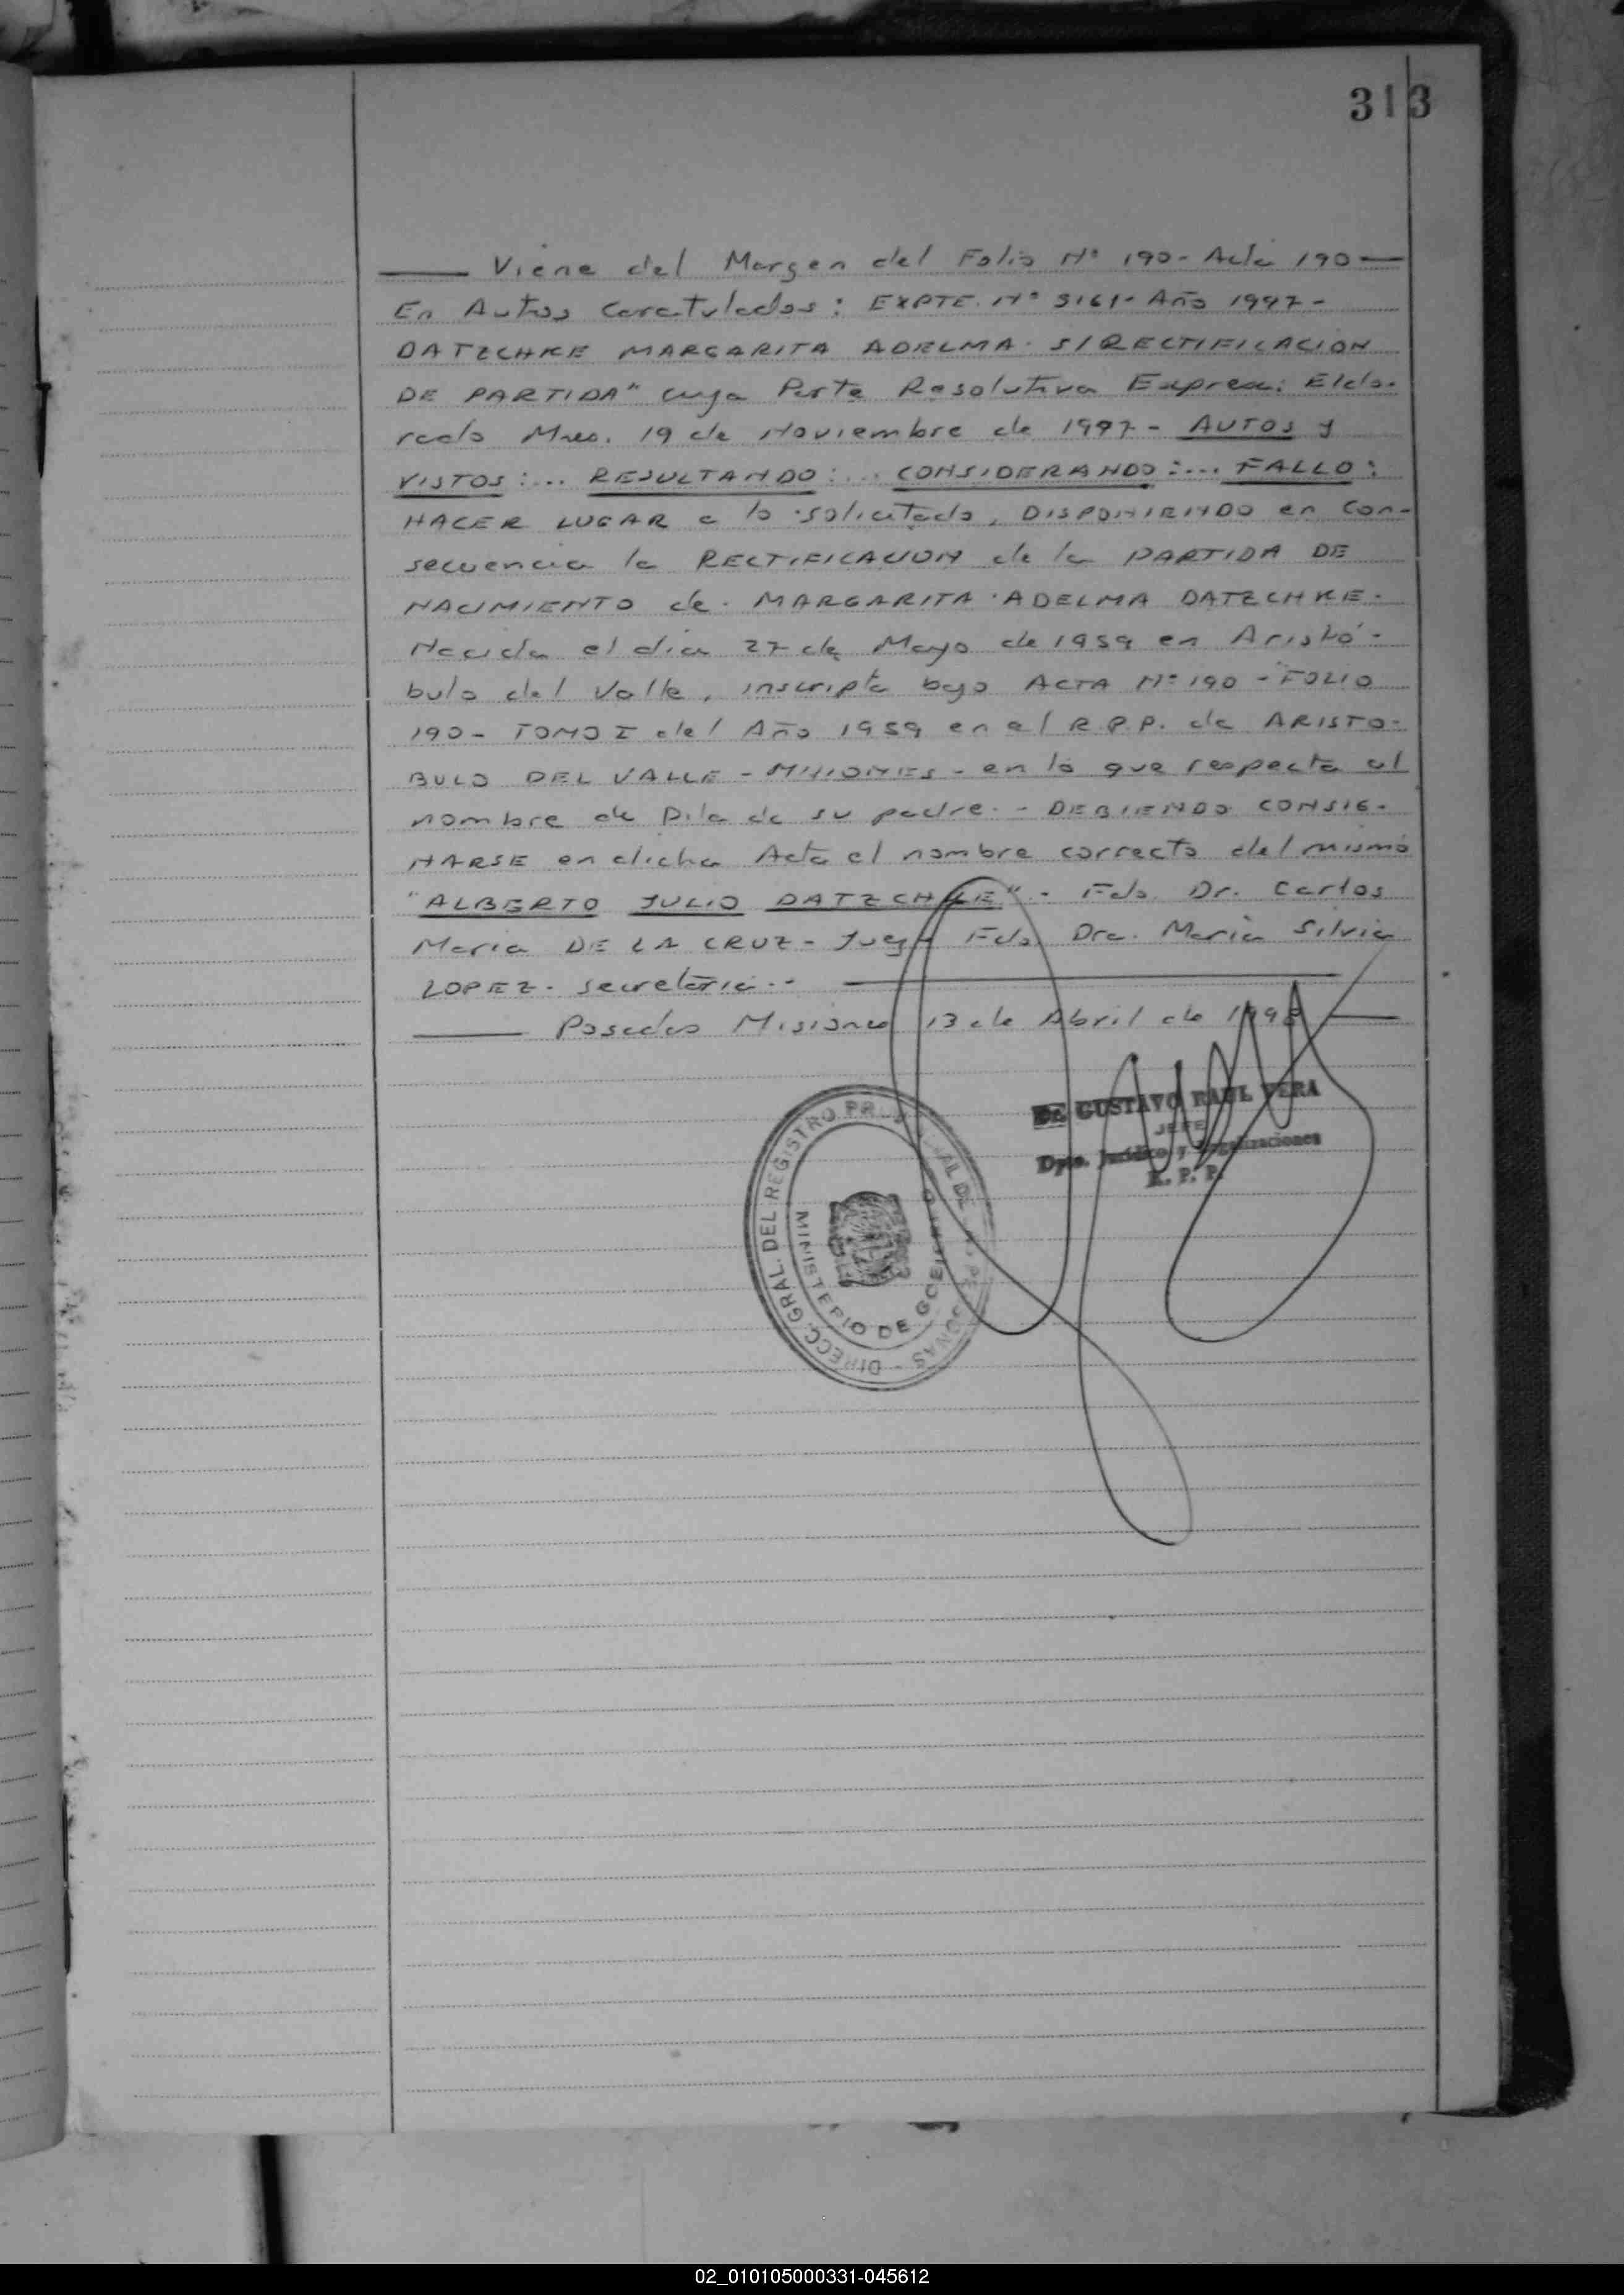 313
Viene del Margen del Folio Nº 190 - Acta 190
En Autos Caratulados: EXPTE. Nº 3161 - Año 1997 -
DATZCHKE MARGARITA ADELMA. S/RECTIFICACION
DE PARTIDA" cuya Parte Resolutiva Expresa: Eldo-
rado Mnes. 19 de Noviembre de 1997 - AUTOS y
VISTOS:... RESULTANDO:... CONSIDERANDO:... FALLO:
HACER LUGAR a lo solicitado, DISPONIENDO en Con-
secuencia la RECTIFICACION de la PARTIDA DE
NACIMIENTO de MARGARITA ADELMA DATZCHKE.
Nacida el día 27 de Mayo de 1959 en Aristó-
bulo del Valle, inscripta bajo ACTA Nº 190 - FOLIO
190 - TOMO I del Año 1959 en el R.P.P. de ARISTO-
BULO DEL VALLE - MISIONES - en lo que respecta al
nombre de Pila de su padre. - DEBIENDO CONSIG-
NARSE en dicha Acta el nombre correcto del mismo
"ALBERTO JULIO DATZCHKE" - Fdo. Dr. Carlos
Maria DE LA CRUZ - Juez - Fdo. Dra. Maria Silvia
LOPEZ - Secretaria. -
Posadas Misiones 13 de Abril de 1998
Dr. GUSTAVO RAUL VERA
JEFE
Dpto. Jurídico y Legalizaciones
R. P. P.
DIRECC. GRAL. DEL REGISTRO PROVINCIAL DE LAS PERSONAS -
MINISTERIO DE GOBIERNO
02_010105000331-045612